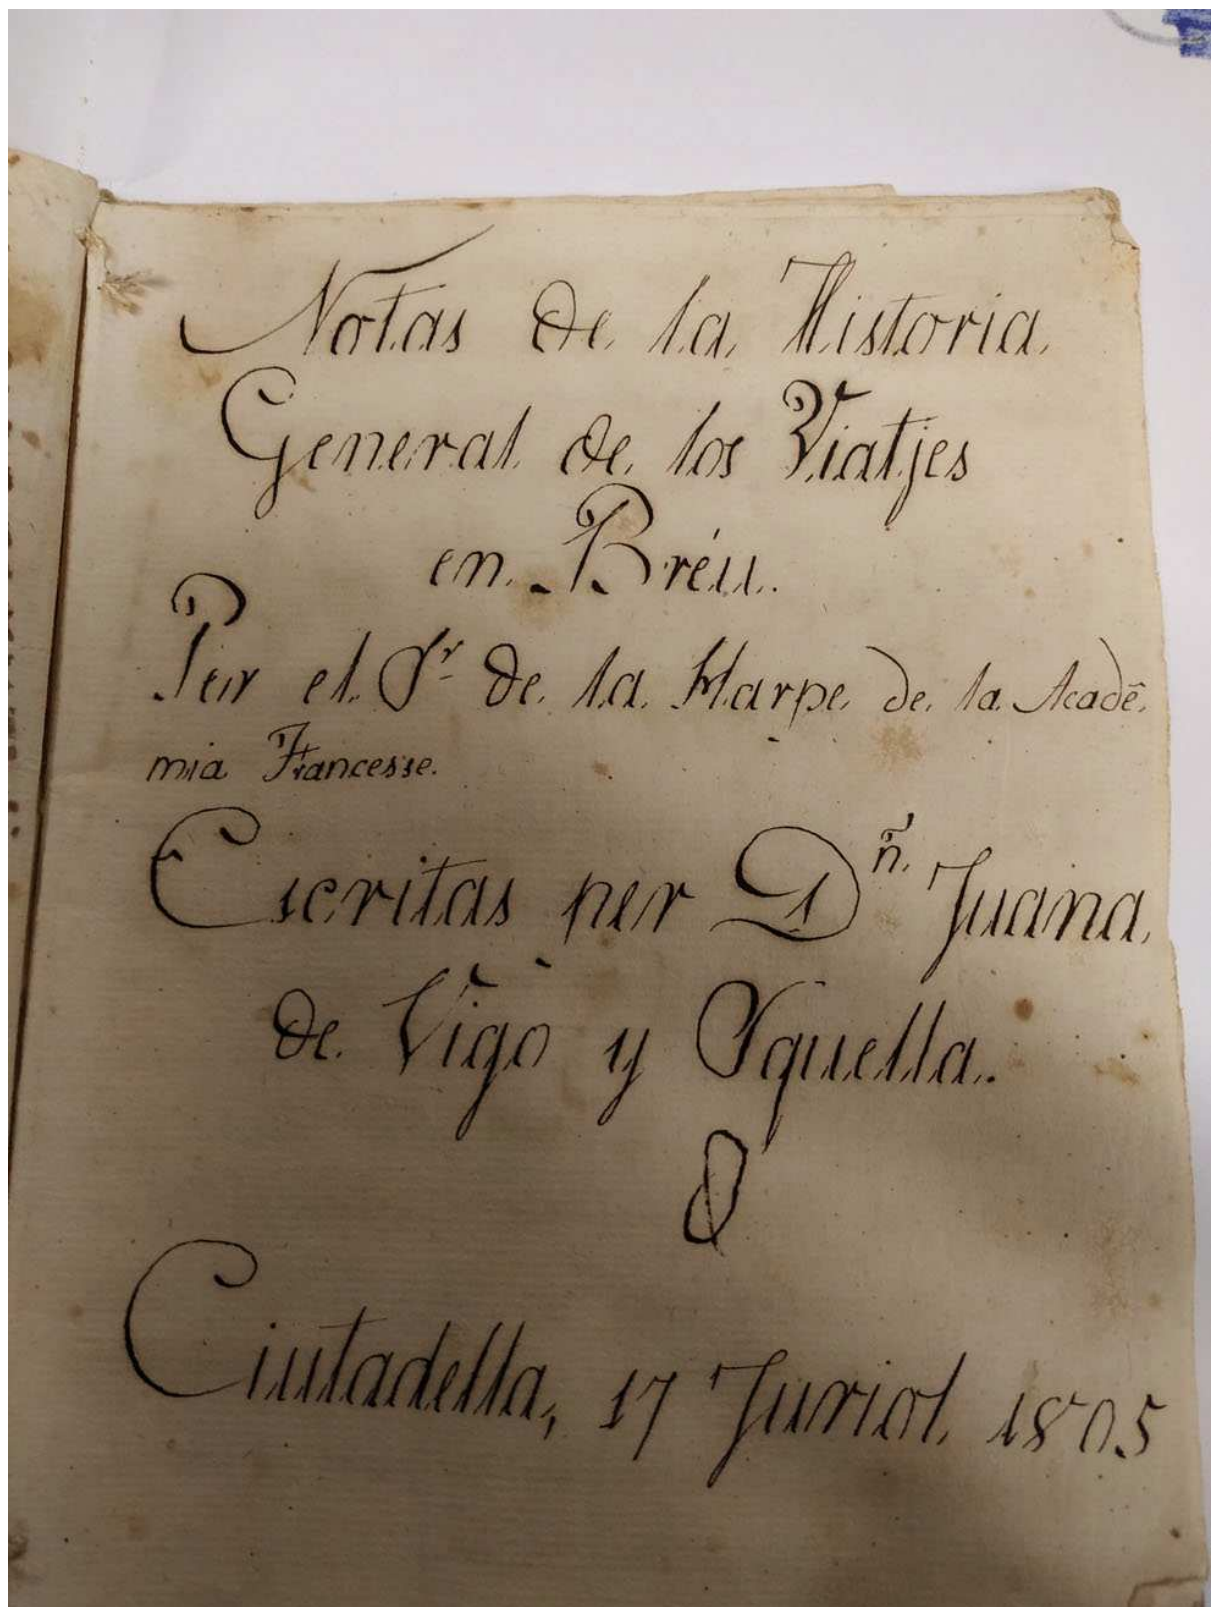 Notas de la Historia
General de los Viatjes
en Bréu.
Per el Sr de la Harpe de la Acadē.
mia Francesse.
Escritas per Dñ. Juana
de Vigo y Squella.
Ciutadella, 17 Juriol, 1805